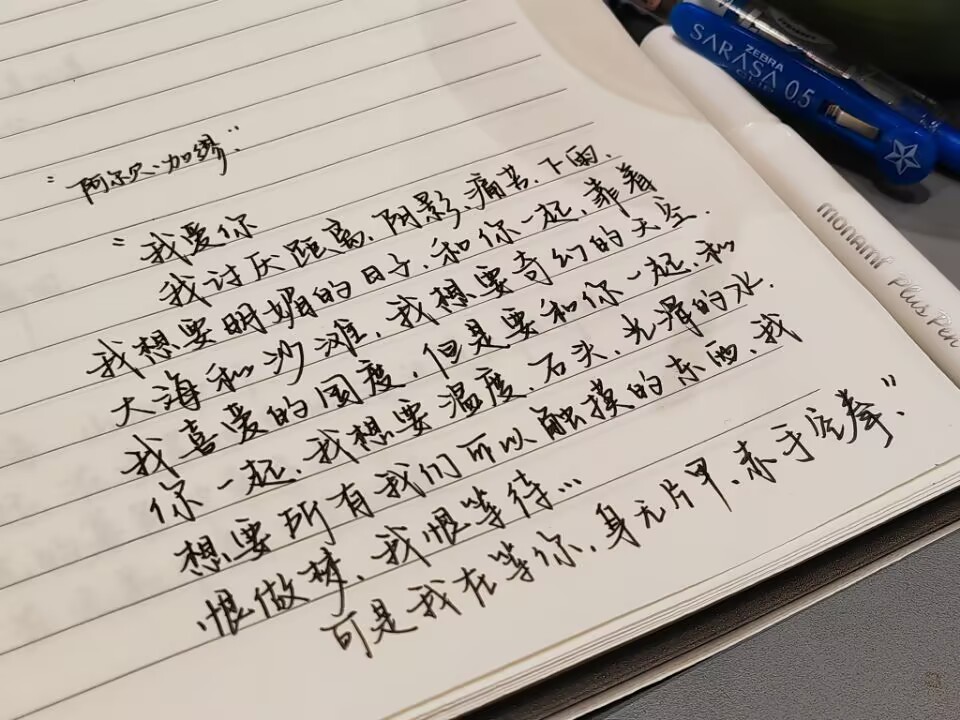 "阿尔贝·加缪."
"我爱你
我讨厌距离、阴影、痛苦、下雨.
我想要明媚的日子.和你一起.靠着
大海和沙滩.我想要奇幻的天空.
我喜爱的国度.但是要和你一起.和
你一起.我想要温度.石头.光滑的水.
想要所有我们所以触摸的东西.我
恨做梦、我恨等待...
可是我在等你.身无片甲.赤手空拳."
ZEBRA
SARASA 0.5
CLIP
monami Plus Pen